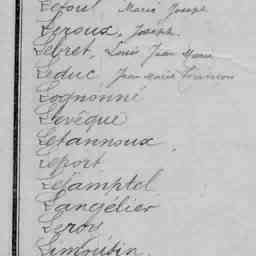 Lefoul Marie Joseph
Leroux, Joseph.
Lebret, Louis Jean Marie
Leduc Jean Marie Francois
Lognonné
Levêque
Letannoux
Leport
Lejamptel
Langélier
Leroy
Limousin.